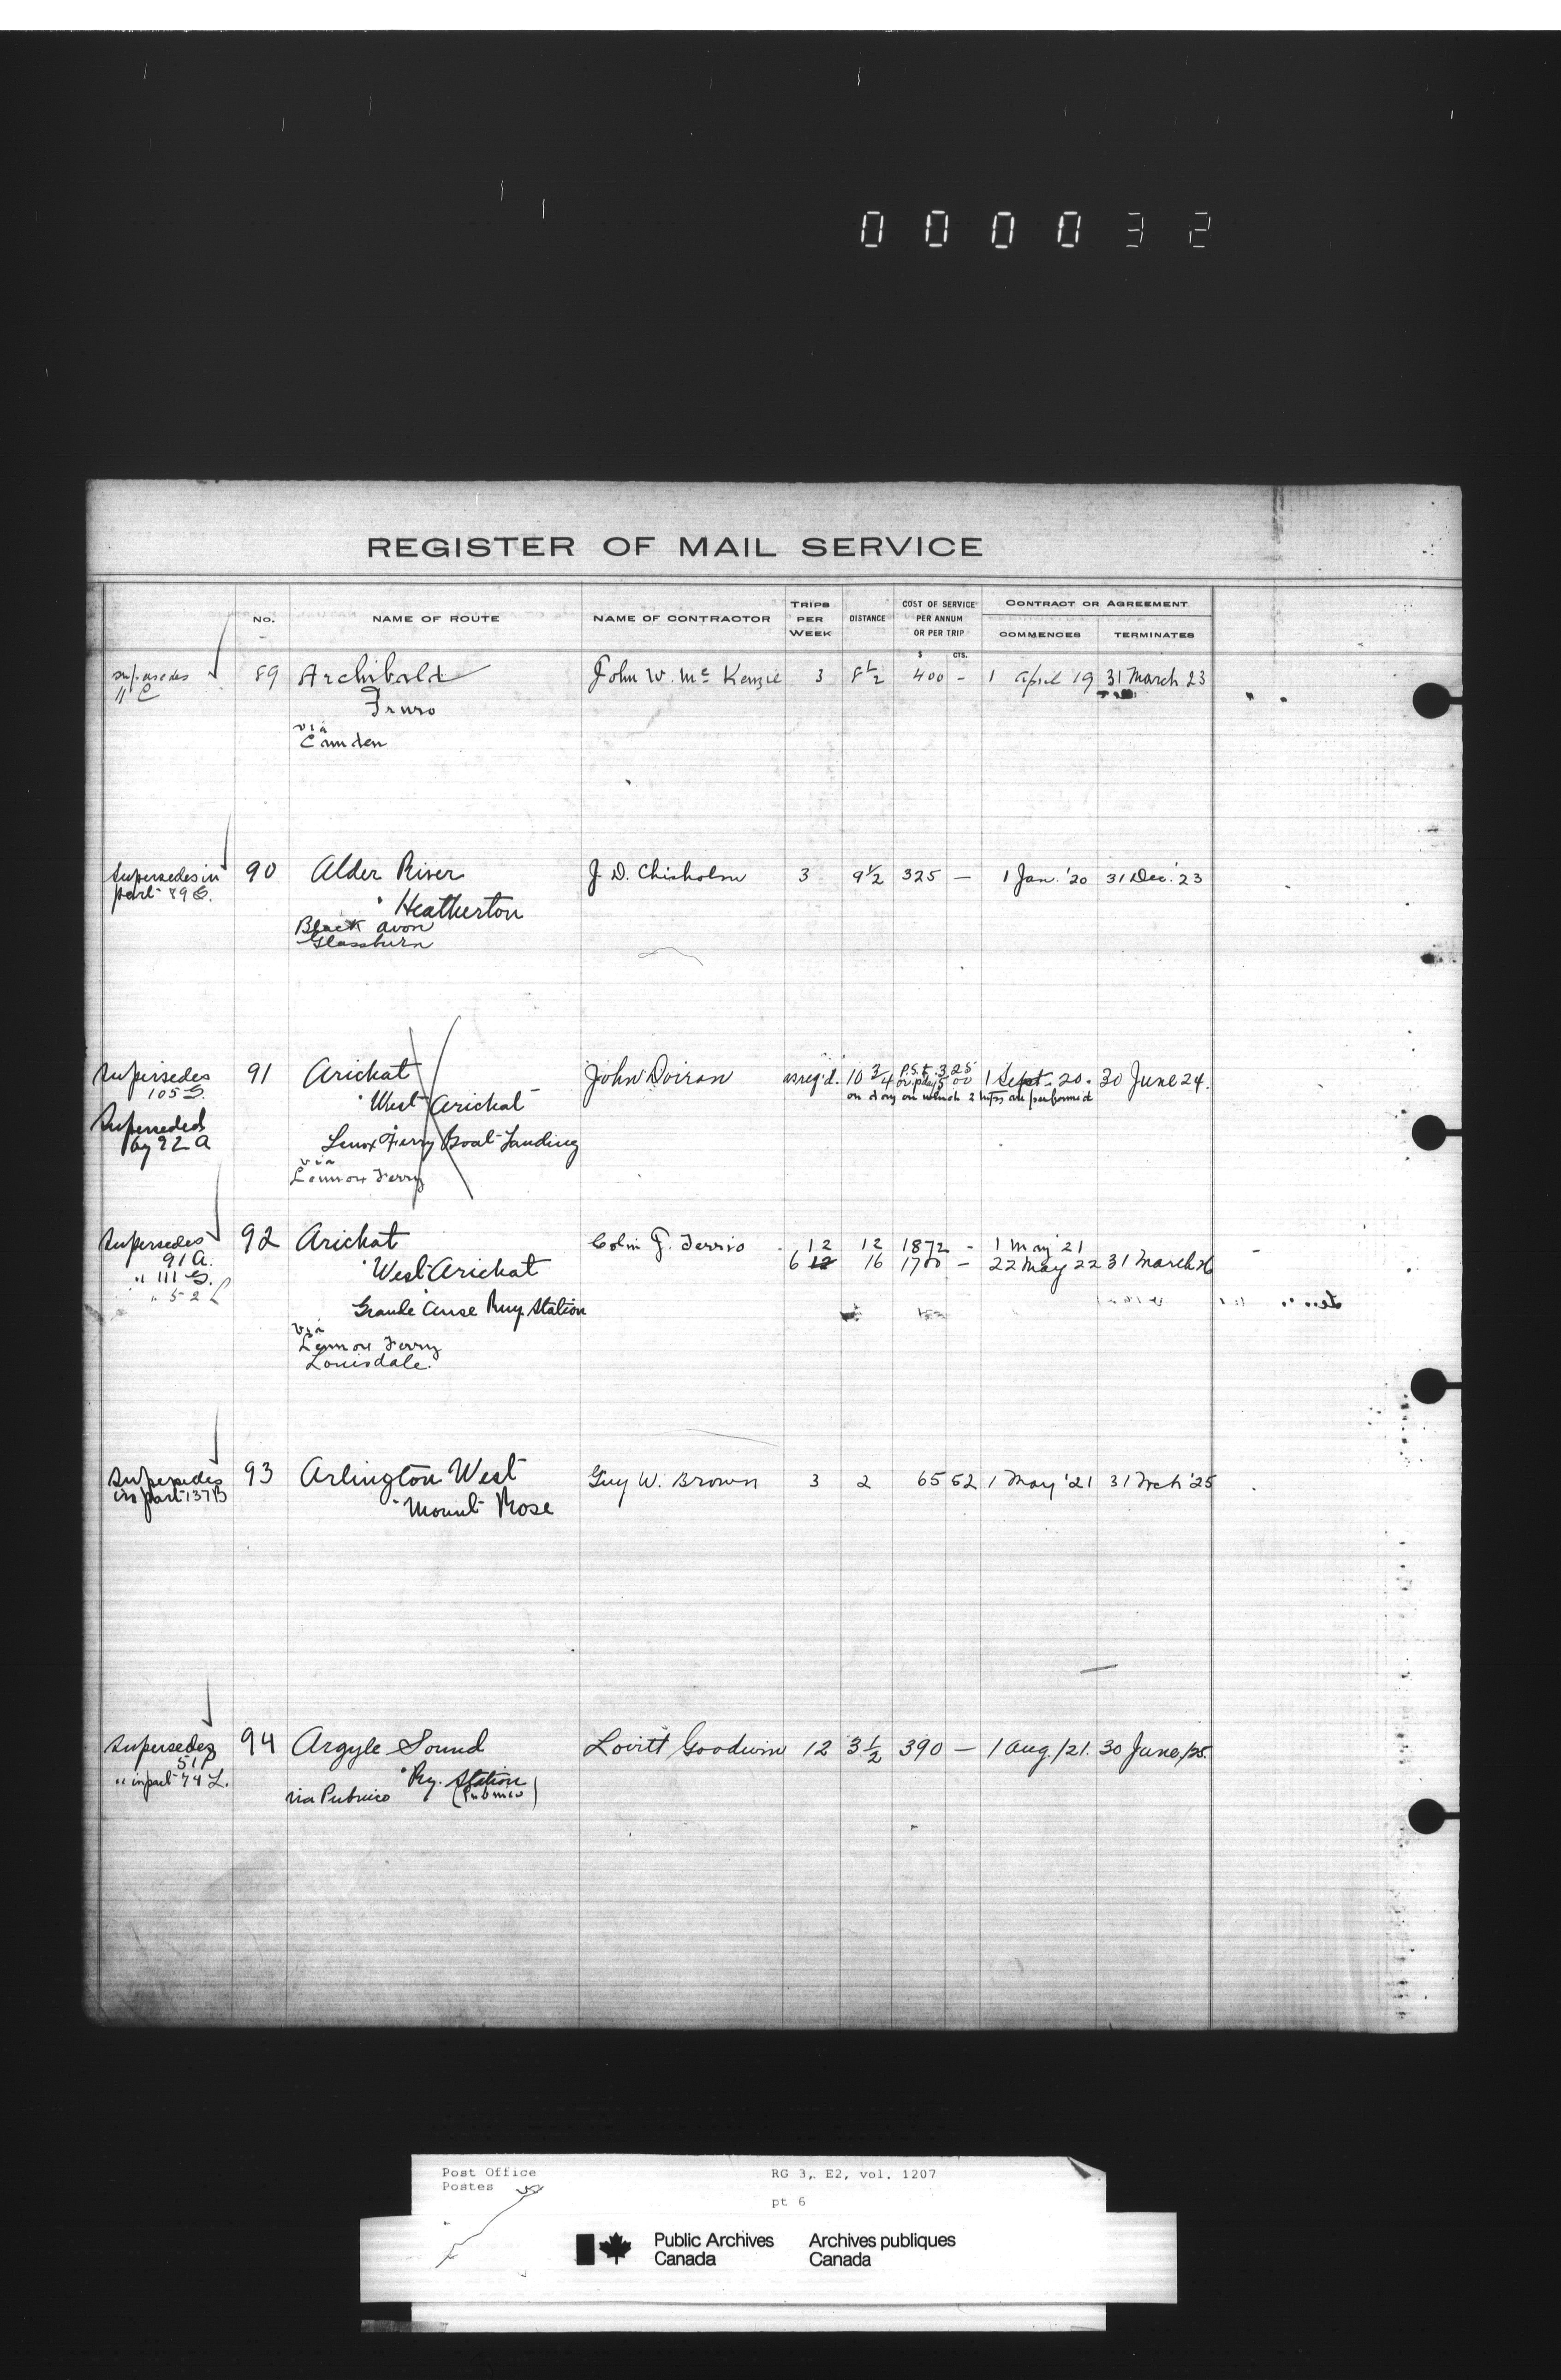 000032
REGISTER OF MAIL SERVICE
No. NAME OF ROUTE NAME OF CONTRACTOR TRIPS PER WEEK DISTANCE COST OF SERVICE PER ANNUM OR PER TRIP CONTRACT OR AGREEMENT
COMMENCES TERMINATES
$ CTS.
supersedes 89 Archibald John W. Mc Kenzie 3 8 1/2 400 - 1 April 19 31 March 23
11 C
Truro
via
Camden
Supersedes in 90 Alder River J. D. Chisholm 3 9 1/2 325 — 1 Jan. '20 31 Dec. '23
part 89 G.
" Heatherton
Black Avon
Glassburn
Supersedes 91 Arichat John Doiran as req'd. 10 3/4 P.S.t. 3 25 1 Sept. 20. 30 June 24.
105 G. or p day 5 00
on day on which 2 trips are performed
" West Arichat
Superseded
by 92 A
Lenox Ferry Boat Landing
via
Lennox Ferry
Supersedes 92 Arichat Colin F. Terrio 12 12 1872 - 1 May '21
91 A. " West Arichat 6 12 16 1700 - 22 May 22 31 March 26
" 111 G.
" 52 L
Grande Anse Ruy. Station
via
Lennox Ferry
Louisdale.
Supersedes 93 Arlington West Guy W. Brown 3 2 65 52 1 May '21 31 Mch '25
in part 137 B
" Mount Rose
Supersedes 94 Argyle Sound Lovitt Goodwin 12 3 1/2 390 — 1 Aug./21. 30 June/25.
51 P
" in part 74 L.
" Ry. Station
via Pubnico (Pubnico)
Post Office RG 3, E2, vol. 1207
Postes
pt 6
Public Archives Archives publiques
Canada Canada